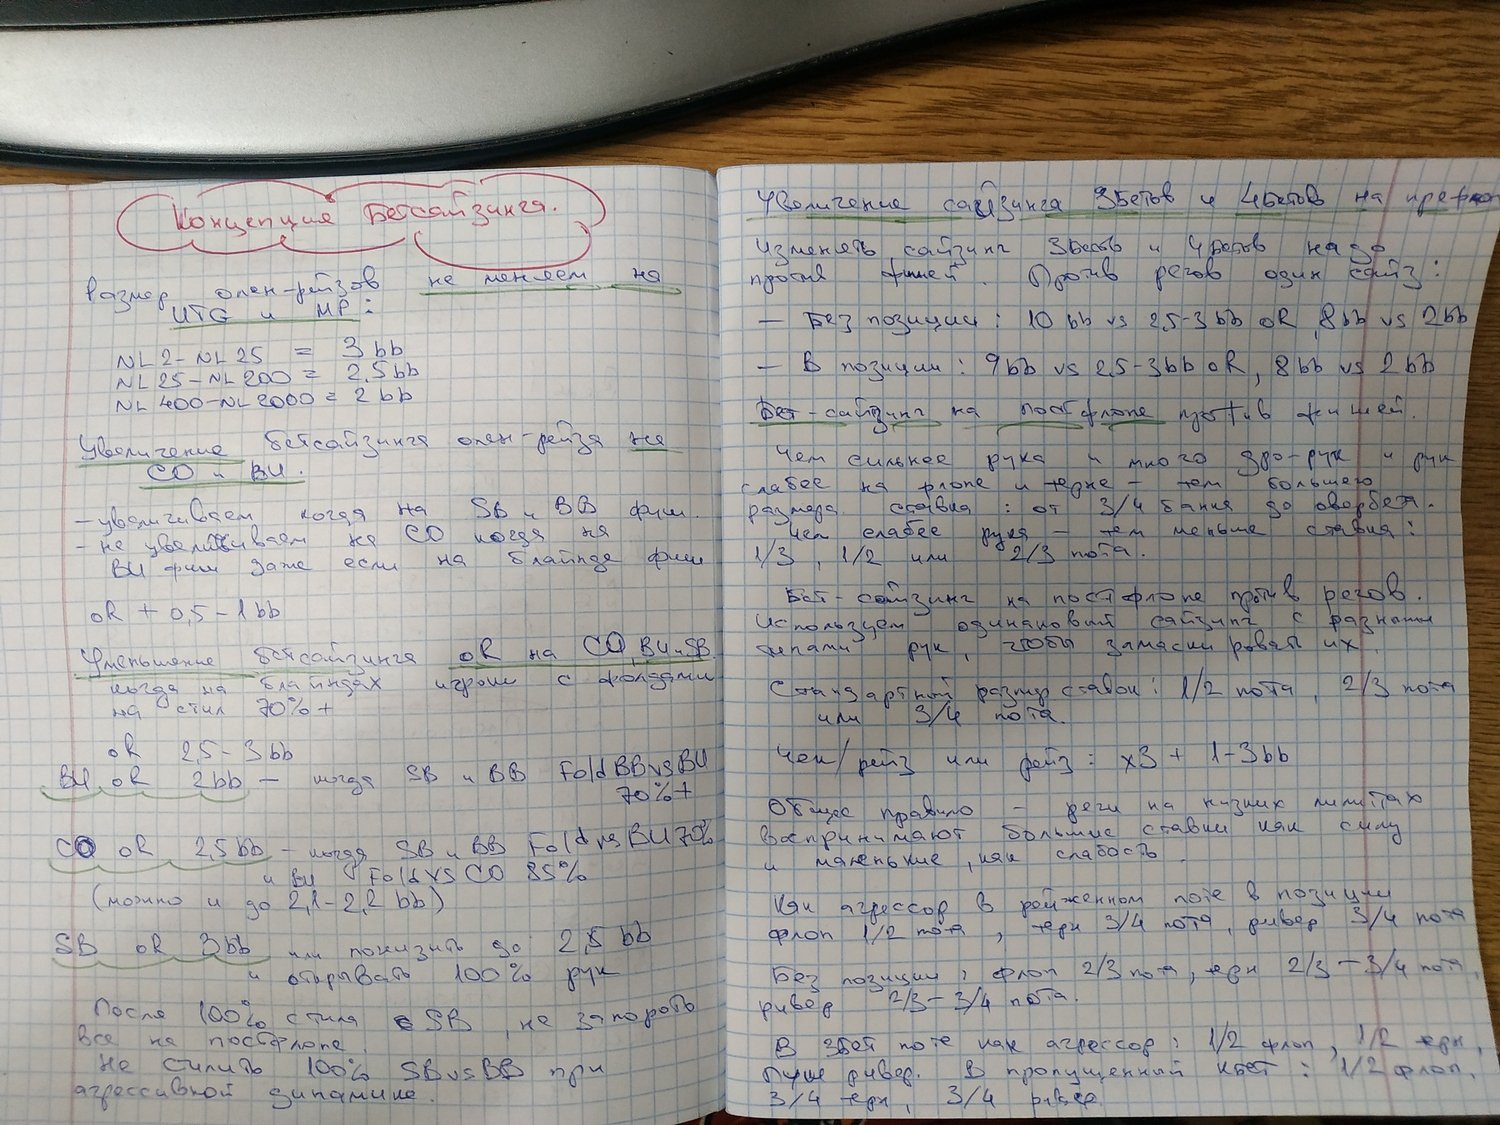 Концепция Бетсайзинга.
Размер опен-рейзов не меняем на
UTG и MP:
NL2-NL25 = 3bb
NL25-NL200 = 2,5bb
NL400-NL2000 = 2bb
Увеличение бетсайзинга опен-рейза на
CO и BU.
- увеличиваем когда на SB и BB фиш.
- не увеличиваем на CO когда на
BU фиш даже если на блайнде фиш
oR + 0,5-1bb
Уменьшение бетсайзинга oR на CO, BU и SB.
когда на блайндах игроки с фолдами
на стил 70%+
oR 2,5-3bb
BU oR 2bb – когда SB и BB Fold BB vs BU
70%+
CO oR 2,5bb – когда SB и BB Fold vs BU 70%
и BU Fold vs CO 85%
(можно и до 2,1-2,2bb)
SB oR 3bb или понизить до 2,5bb
и открывать 100% рук
После 100% стила с SB, не запороть
все на постфлопе.
Не стилить 100% SB vs BB при
агрессивной динамике.
Увеличение сайзинга 3бетов и 4бетов на префлоп
Изменять сайзинг 3бетов и 4бетов надо
против фишей. Против регов один сайз:
– Без позиции: 10bb vs 2,5-3bb oR, 8bb vs 2bb
– В позиции: 9bb vs 2,5-3bb oR, 8bb vs 2bb
Бет-сайзинг на постфлопе против фишей.
Чем сильнее рука и много дро-рук и рук
слабее на флопе и терне – тем большего
размера ставка: от 3/4 банка до овербета.
Чем слабее рука – тем меньше ставка:
1/3, 1/2 или 2/3 пота.
Бет-сайзинг на постфлопе против регов.
Используем одинаковый сайзинг с разными
типами рук, чтобы замаскировать их.
Стандартный размер ставки: 1/2 пота, 2/3 пота
или 3/4 пота.
Чек/рейз или рейз: х3 + 1-3bb
Общее правило – реги на низких лимитах
воспринимают большие ставки как силу
и маленькие, как слабость.
Как агрессор в рейженном поте в позиции
флоп 1/2 пота, терн 3/4 пота, ривер 3/4 пота
Без позиции: флоп 2/3 пота, терн 2/3-3/4 пота,
ривер 2/3-3/4 пота.
В 3бет поте как агрессор: 1/2 флоп, 1/2 терн,
пуш ривер. В пропущенный кбет: 1/2 флоп,
3/4 терн, 3/4 ривер